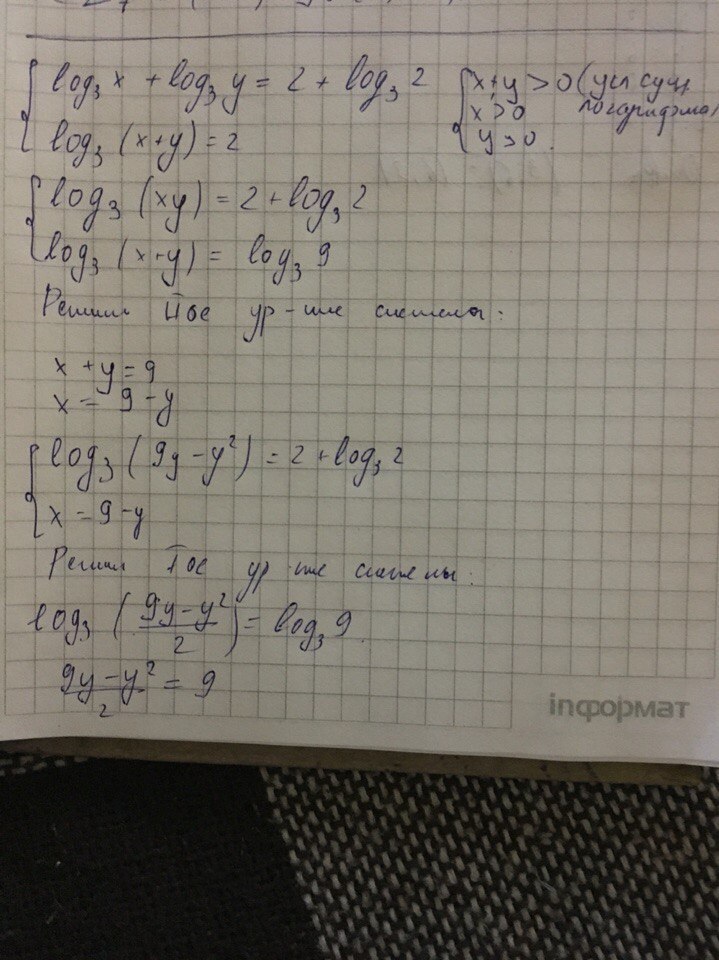 log₃ x + log₃ y = 2 + log₃ 2
log₃ (x+y) = 2
x+y > 0 (усл сущ
x > 0 логарифма)
y > 0.
log₃ (xy) = 2 + log₃ 2
log₃ (x+y) = log₃ 9
Решим IIое ур-ние системы:
x + y = 9
x = 9 - y
log₃ (9y - y²) = 2 + log₃ 2
x = 9 - y
Решим Iое ур-ние системы:
log₃ ((9y - y²)/2) = log₃ 9.
(9y - y²)/2 = 9
inформат